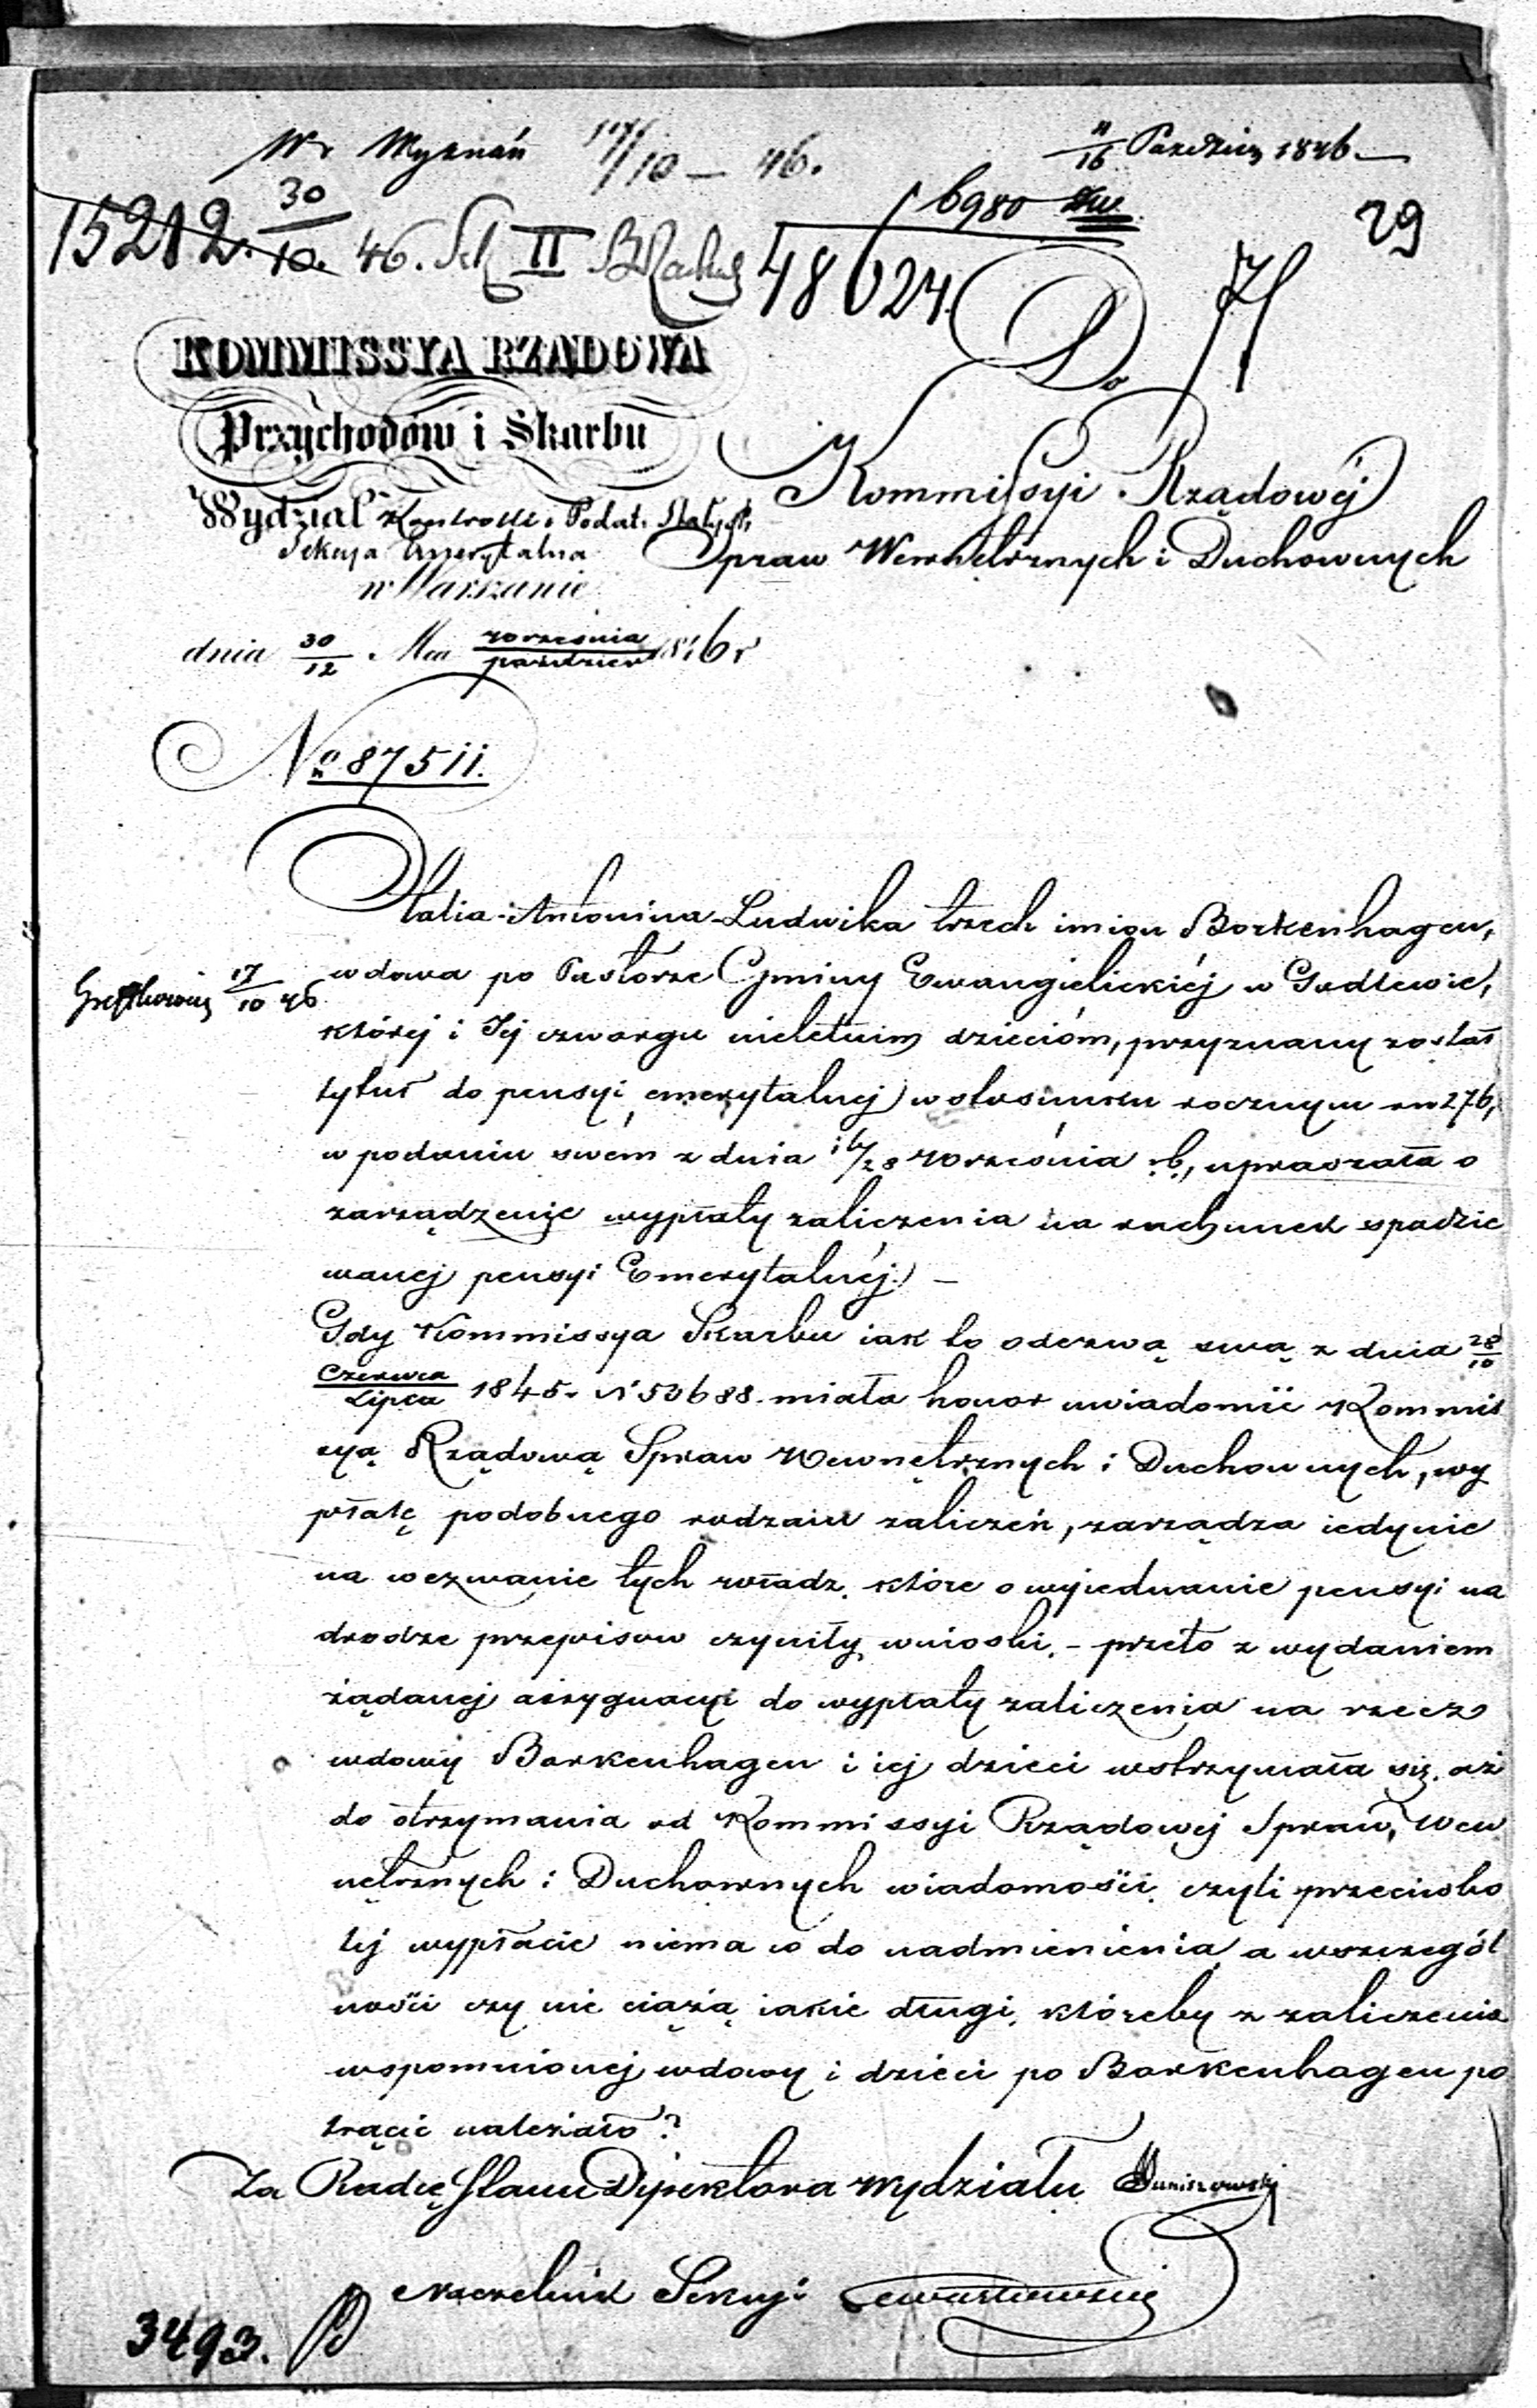 W. Wyznań 17/10 – 46.
4/16 Paździer 1846 –
15212. 30/10. 46. Sek II
16980
48624
29
KOMMISSYA RZĄDOWA
Przychodów i Skarbu
Wydział Kontrolli i Podat: Stałych
Sekcya Emerytalna
w Warszawie
dnia 30/12 Mca września/paździer 1846 r
No 87511.
Do
Kommissyi Rządowéj
Spraw Wewnętrznych i Duchownych
17/10 46
Otalia-Antonina-Ludwika trzech imion Borkenhagen,
wdowa po Pastorze Gminy Ewangielickiéj w Godlewie,
której i Jéj czworgu nieletnim dzieciόm, przyznany został
tytuł do pensyi emerytalnej w stosunku rocznym rs 276,
w podaniu swém z dnia 16/28 września r.b., upraszała o
zarządzenie wypłaty zaliczenia na rachunek spodzie
wanej pensyi Emerytalnéj. –
Gdy Kommissya Skarbu iak to odezwą swą z dnia 28/10
Czerwca/Lipca 1845 r N 50688. miała honor uwiadomić Kommis
syą Rządową Spraw Wewnętrznych i Duchownych, wy
płatę podobnego rodzaiu zaliczeń, zarządza iedynie
na wezwanie tych władz, które o wyiednanie pensyi na
drodze przepisow czyniły wnioski. – przeto z wydaniem
żądanej assygnacyi do wypłaty zaliczenia na rzecz
wdowy Borkenhagen i iej dzieci wstrzymała się, aż
do otrzymania od Kommissyi Rządowej Spraw Wew
nętrznych i Duchownych wiadomości, czyli przeciwko
tej wypłacie niema co do nadmienienia, a wszczegól
ności czy nie ciążą iakie długi, któreby z zaliczenia
wspomnionej wdowy i dzieci po Borkenhagen po
trącić należało?
Za Radcę Stanu Dyrektora Wydziału
Naczelnik Sekcyi
3493.